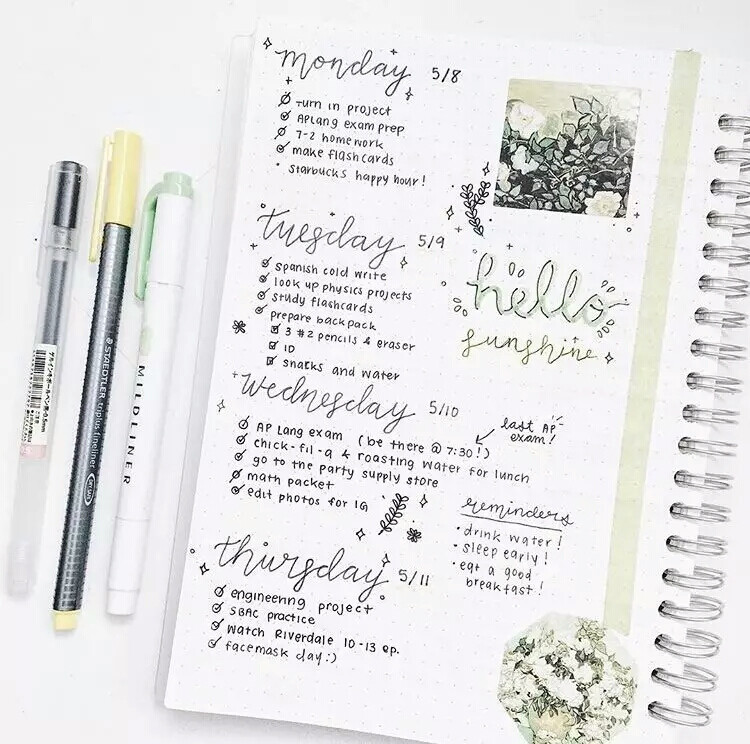 monday 5/8
turn in project
AP Lang exam prep
7-2 homework
make flashcards
starbucks happy hour!
tuesday 5/9
spanish cold write
look up physics projects
study flashcards
prepare backpack
3 #2 pencils & eraser
ID
snacks and water
hello
sunshine
wednesday 5/10
AP Lang exam (be there @ 7:30!)
last AP
exam!
chick-fil-a & roasting water for lunch
go to the party supply store
math packet
edit photos for IG
reminders
• drink water!
• sleep early!
• eat a good
breakfast!
thursday 5/11
engineering project
SBAC practice
watch Riverdale 10-13 ep.
facemask day:)
STAEDTLER triplus fineliner
MILDLINER